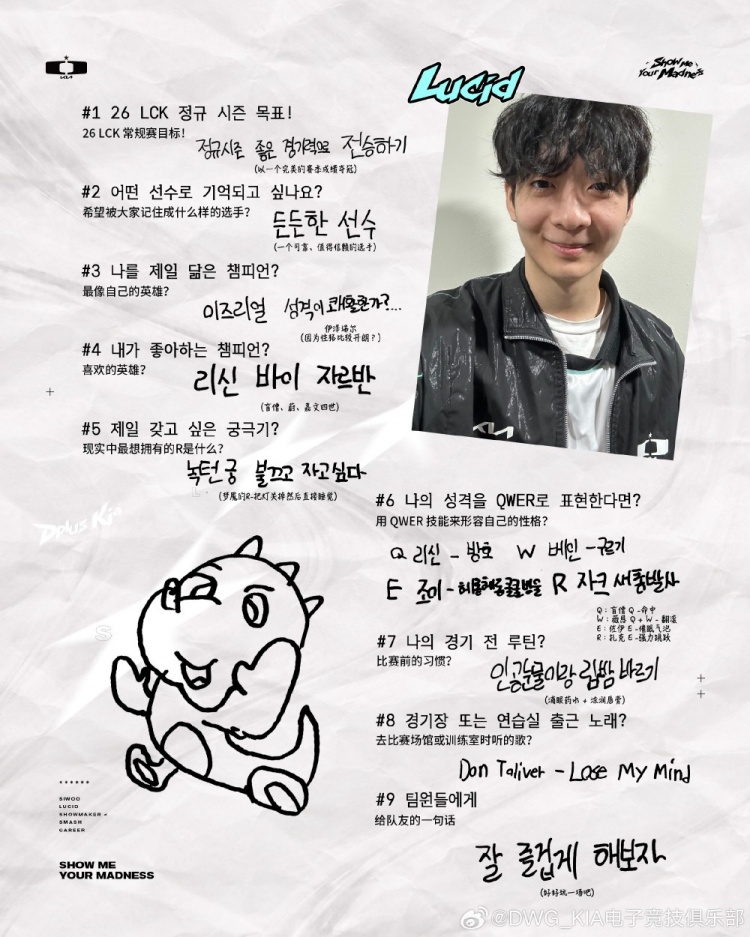 LCK
SHOW ME
YOUR MADNESS
Lucid
#1 26 LCK 정규 시즌 목표!
26 LCK 常规赛目标!
정규시즌 좋은 경기력으로 전승하기
(以一个完美的赛季成绩夺冠)
#2 어떤 선수로 기억되고 싶나요?
希望被大家记住成什么样的选手?
든든한 선수
(一个可靠、值得信赖的选手)
#3 나를 제일 닮은 챔피언?
最像自己的英雄?
이즈리얼 성격이 쾌활한가?...
伊泽瑞尔
(因为性格比较开朗?)
#4 내가 좋아하는 챔피언?
喜欢的英雄?
리신 바이 자르반
(盲僧、蔚、嘉文四世)
#5 제일 갖고 싶은 궁극기?
现实中最想拥有的R是什么?
녹턴 궁 불끄고 자고싶다
(梦魇的R-把灯关掉然后直接睡觉)
Dplus Kia
#6 나의 성격을 QWER로 표현한다면?
用 QWER 技能来形容自己的性格?
Q 리신 - 방호 W 베인 - 구르기
E 조이 - R 자크 새총발사
Q:盲僧 Q-命中
W:薇恩 Q+W-翻滚
E:佐伊 E-催眠气泡
R:扎克 E-强力跳跃
#7 나의 경기 전 루틴?
比赛前的习惯?
인공눈물이랑 립밤 바르기
(滴眼药水 + 涂润唇膏)
#8 경기장 또는 연습실 출근 노래?
去比赛场馆或训练室时听的歌?
Don Toliver - Lose My Mind
#9 팀원들에게
给队友的一句话
잘 즐겁게 해보자
(好好玩一场吧)
SIWOO
LUCID
SHOWMAKER
SMASH
CAREER
SHOW ME
YOUR MADNESS
@DWG_KIA电子竞技俱乐部